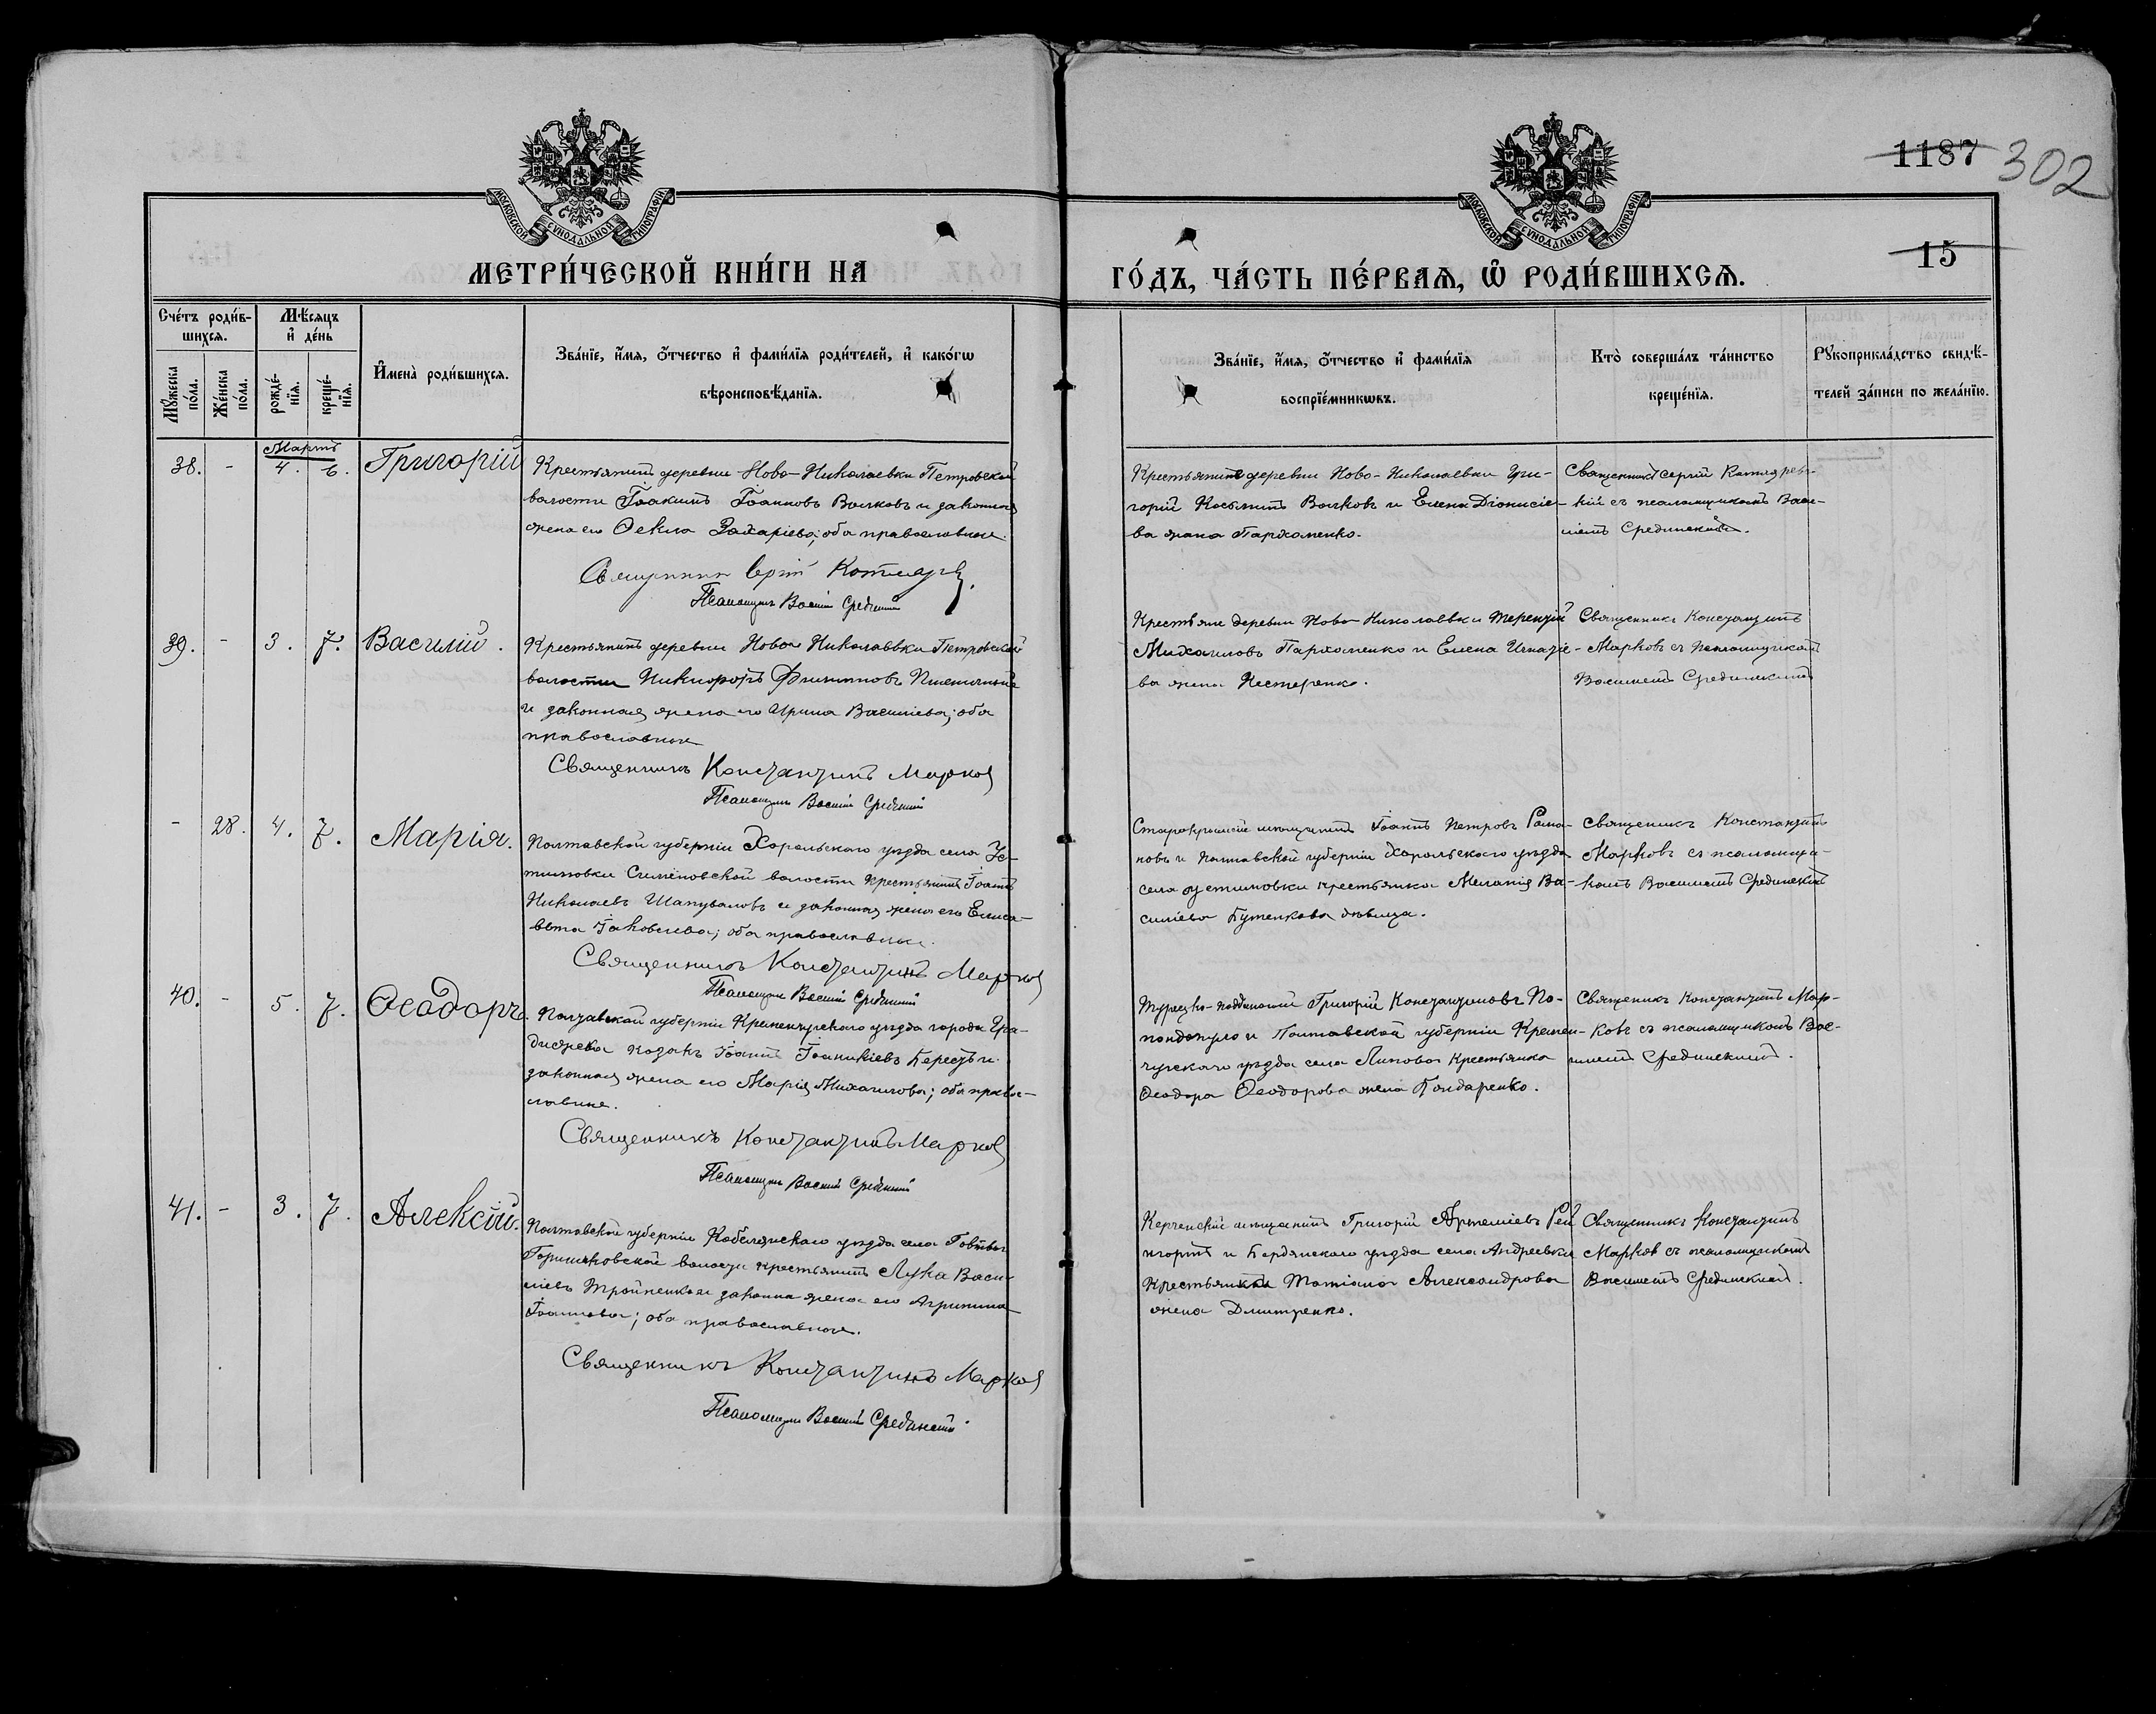 1187 302
15
МОСКОВСКОЙ СѴНОДАЛЬНОЙ ТИПОГРАФІИ
МОСКОВСКОЙ СѴНОДАЛЬНОЙ ТИПОГРАФІИ
МЕТРИ́ЧЕСКОЙ КНИ́ГИ НА ГО́ДЪ, ЧА́СТЬ ПЕ́РВАѦ, Ѽ РОДИ́ВШИХСѦ.
Сче́тъ роди́в-
шихсѧ.
Мꙋ́жеска по́ла.
Же́нска по́ла.
Мѣ́сѧцъ
и҆ де́нь
рожде́-
нїѧ.
креще́-
нїѧ.
И҆мена̀ роди́вшихсѧ.
Зва́нїе, и҆́мѧ, ѻ҆́тчество и҆ фами́лїѧ роди́телей, и҆ како́гѡ
вѣроисповѣ́данїѧ.
Зва́нїе, и҆́мѧ, ѻ҆́тчество и҆ фами́лїѧ
воспрїе́мникѡвъ.
Кто̀ соверша́лъ та́инство
креще́нїѧ.
Рꙋкоприкла́дство свидѣ́-
телей за́писи по жела́нїю.
Мартъ
38. - 4. 6. Григорій
Крестьянинъ деревни Ново-Николаевки Петровской
волости Іоакимъ Іоанновъ Волковъ и законная
жена его Ѳекла Захаріева; оба православные.
Священник Сергій Котляре
Псаломщикъ Василій Срединскій
Крестьяне деревни Ново-Николаевки Гри-
горій Косьминъ Волковъ и Елена Діонисіе-
ва жена Пархоменко.
Священникъ Сергій Котлярев-
кій съ псаломщикомъ Васи-
ліемъ Срединскимъ.
39. - 3. 7. Василій.
Крестьянинъ деревни Ново Николаевки Петровской
волости Никифоръ Филипповъ
и законная жена его Ирина Васильева; оба
православные
Священникъ Константинъ Марков
Псаломщикъ Василій Срединскій
Крестьяне деревни Ново Николаевки Терентій
Михаиловъ Пархоменко и Елена Игнатіе-
ва жена Нестеренко.
Священникъ Константинъ
Марковъ съ псаломщикомъ
Василіемъ Срединскимъ
- 28. 4. 7. Марія.
Полтавской губерніи Хорольскаго уѣзда села Ус-
тимовки Семеновской волости крестьянинъ Іоаннъ
Николаевъ Шаповаловъ и законная жена его Елиса-
вета Іаковлева; оба православные.
Священникъ Константинъ Марков
Псаломщикъ Василій Срединскій
Старокрымскій мѣщанинъ Іоаннъ Петровъ Рома-
новъ и Полтавской губерніи Хорольскаго уѣзда
села Устимовки крестьянка Меланія Ва-
силіева Бутенкова дѣвица.
Священникъ Константинъ
Марковъ съ псаломщи-
комъ Василіемъ Срединскимъ
40. - 5. 7. Ѳеодоръ.
Полтавской губерніи Кременчугскаго уѣзда города Гра-
дижска козакъ Іоаннъ Іоанникіевъ Берестъ и
законная жена его Марія Михаилова; оба право-
славные.
Священникъ Константинъ Марков
Псаломщикъ Василій Срединскій
Турецко-подданный Григорій Константиновъ По-
пондопуло и Полтавской губерніи Кремен-
чугскаго уѣзда села Липовой крестьянка
Ѳеодора Ѳеодорова жена Бондаренко.
Священникъ Константинъ Мар-
ковъ съ псаломщикомъ Вас-
иліемъ Срединскимъ.
41. - 3. 7. Алексій.
Полтавской губерніи Кобелякскаго уѣзда села Говтвы
волости крестьянинъ Лука Васи-
ліевъ Тройненко и законная жена его Агрипина
Іоаннова; оба православные.
Священникъ Константинъ Марков
Псаломщикъ Василій Срединскій
Керченскій мѣщанинъ Григорій Артеміевъ Рей
нгортъ и Бердянскаго уѣзда села Андреевки
крестьянка Татіана Александрова
жена Дмитренко.
Священникъ Константинъ
Марков съ псаломщикомъ
Василіемъ Срединскимъ.